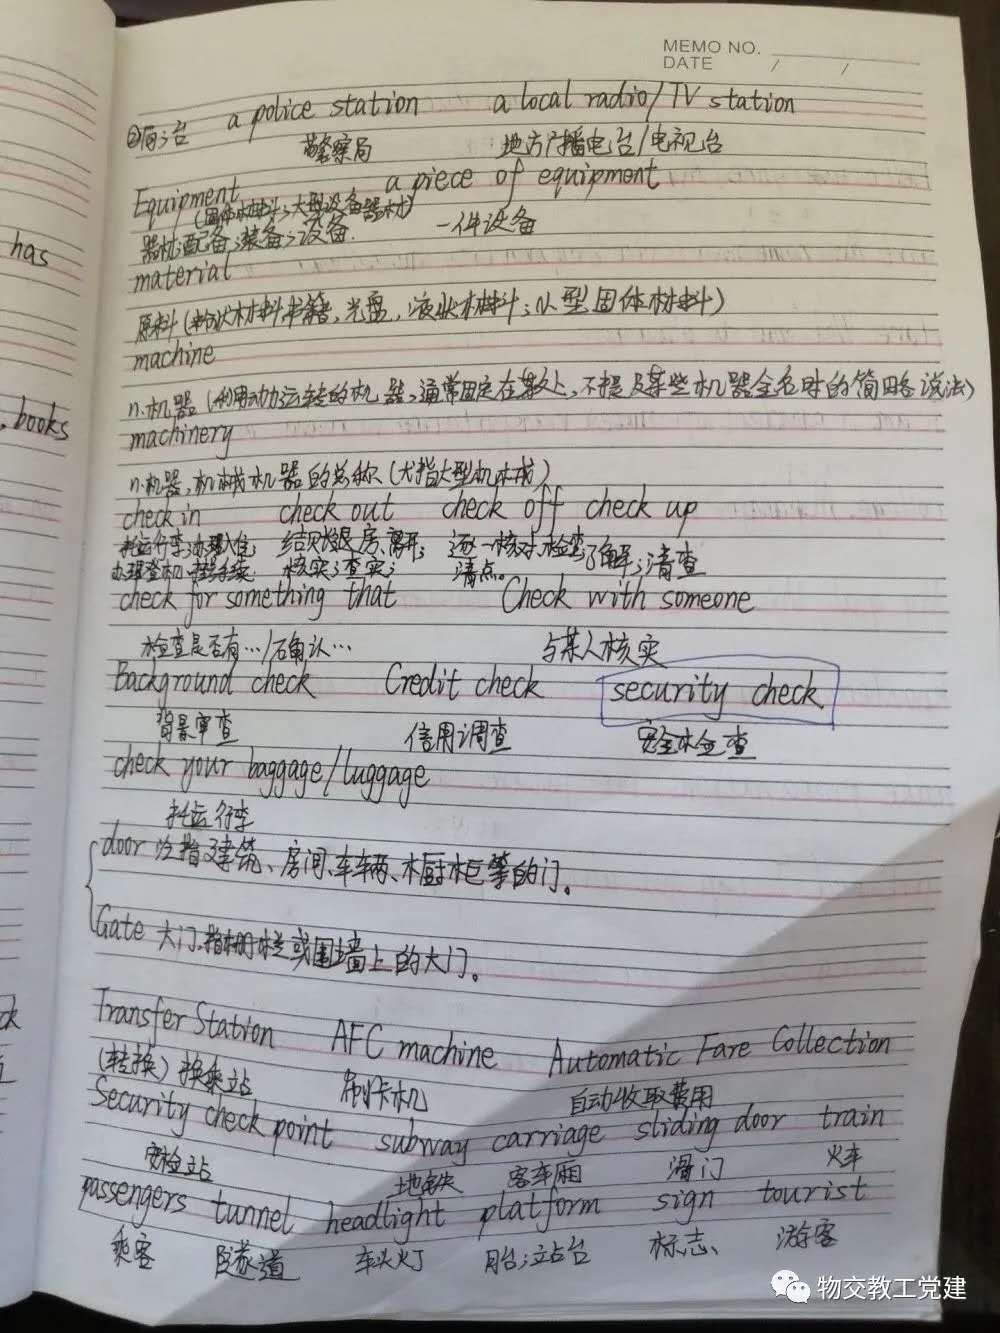 MEMO NO.
DATE / /
②局;台 a police station a local radio/TV station
警察局 地方广播电台/电视台
Equipment a piece of equipment
(固体材料;大型设备器材)
器材;配备;装备;设备. 一件设备
material
原料(粉状材料,书籍,光盘,液状材料;小型固体材料)
machine
n.机器(利用动力运转的机器,通常固定在某处上,不提及某些机器全名时的简略说法)
machinery
n.机器,机械,机器的总称(尤指大型机械)
check in check out check off check up
托运行李;办理入住 结账退房、离开; 逐一核对,检查 了解;清查
办理登机 手续 核实;查实; 清点。
check for something that Check with someone
检查是否有…/确认… 与某人核实
Background check Credit check security check
背景审查 信用调查 安全检查
check your baggage/luggage
托运行李
door 泛指建筑、房间、车辆、橱柜等的门。
Gate 大门.指栅栏或围墙上的大门。
Transfer Station AFC machine Automatic Fare Collection
(转换)换乘站 刷卡机 自动收取费用
Security check point subway carriage sliding door train
安检站 地铁 客车厢 滑门 火车
passengers tunnel headlight platform sign tourist
乘客 隧道 车头灯 月台;站台 标志、 游客
has
books
物交教工党建